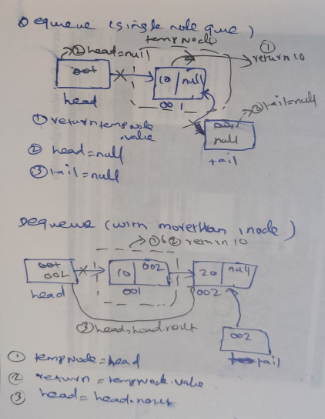 Dequeue (single node que)
tempNode
② head=null
①
return 10
001
10 null
head
001
③ tail=null
① return tempnode
value
null
② head=null
tail
③ tail=null
Dequeue (with more than 1 node)
①&② return 10
001
002
10 002
20 null
head
001
002
③ head=head.next
002
tail
① tempNode=head
② return=tempNode.value
③ head=head.next